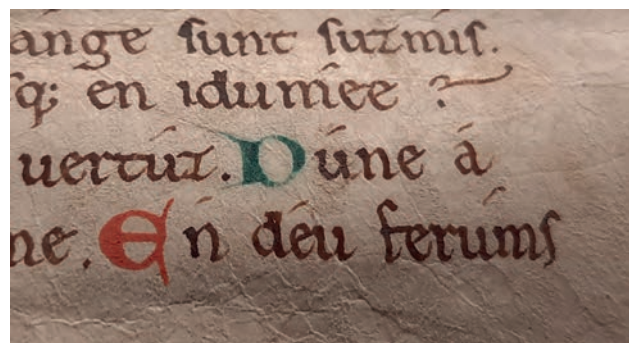 ange sunt suzmis.
sq; en idumée ?
uertúz. Dúne á
ne. En déu ferúms